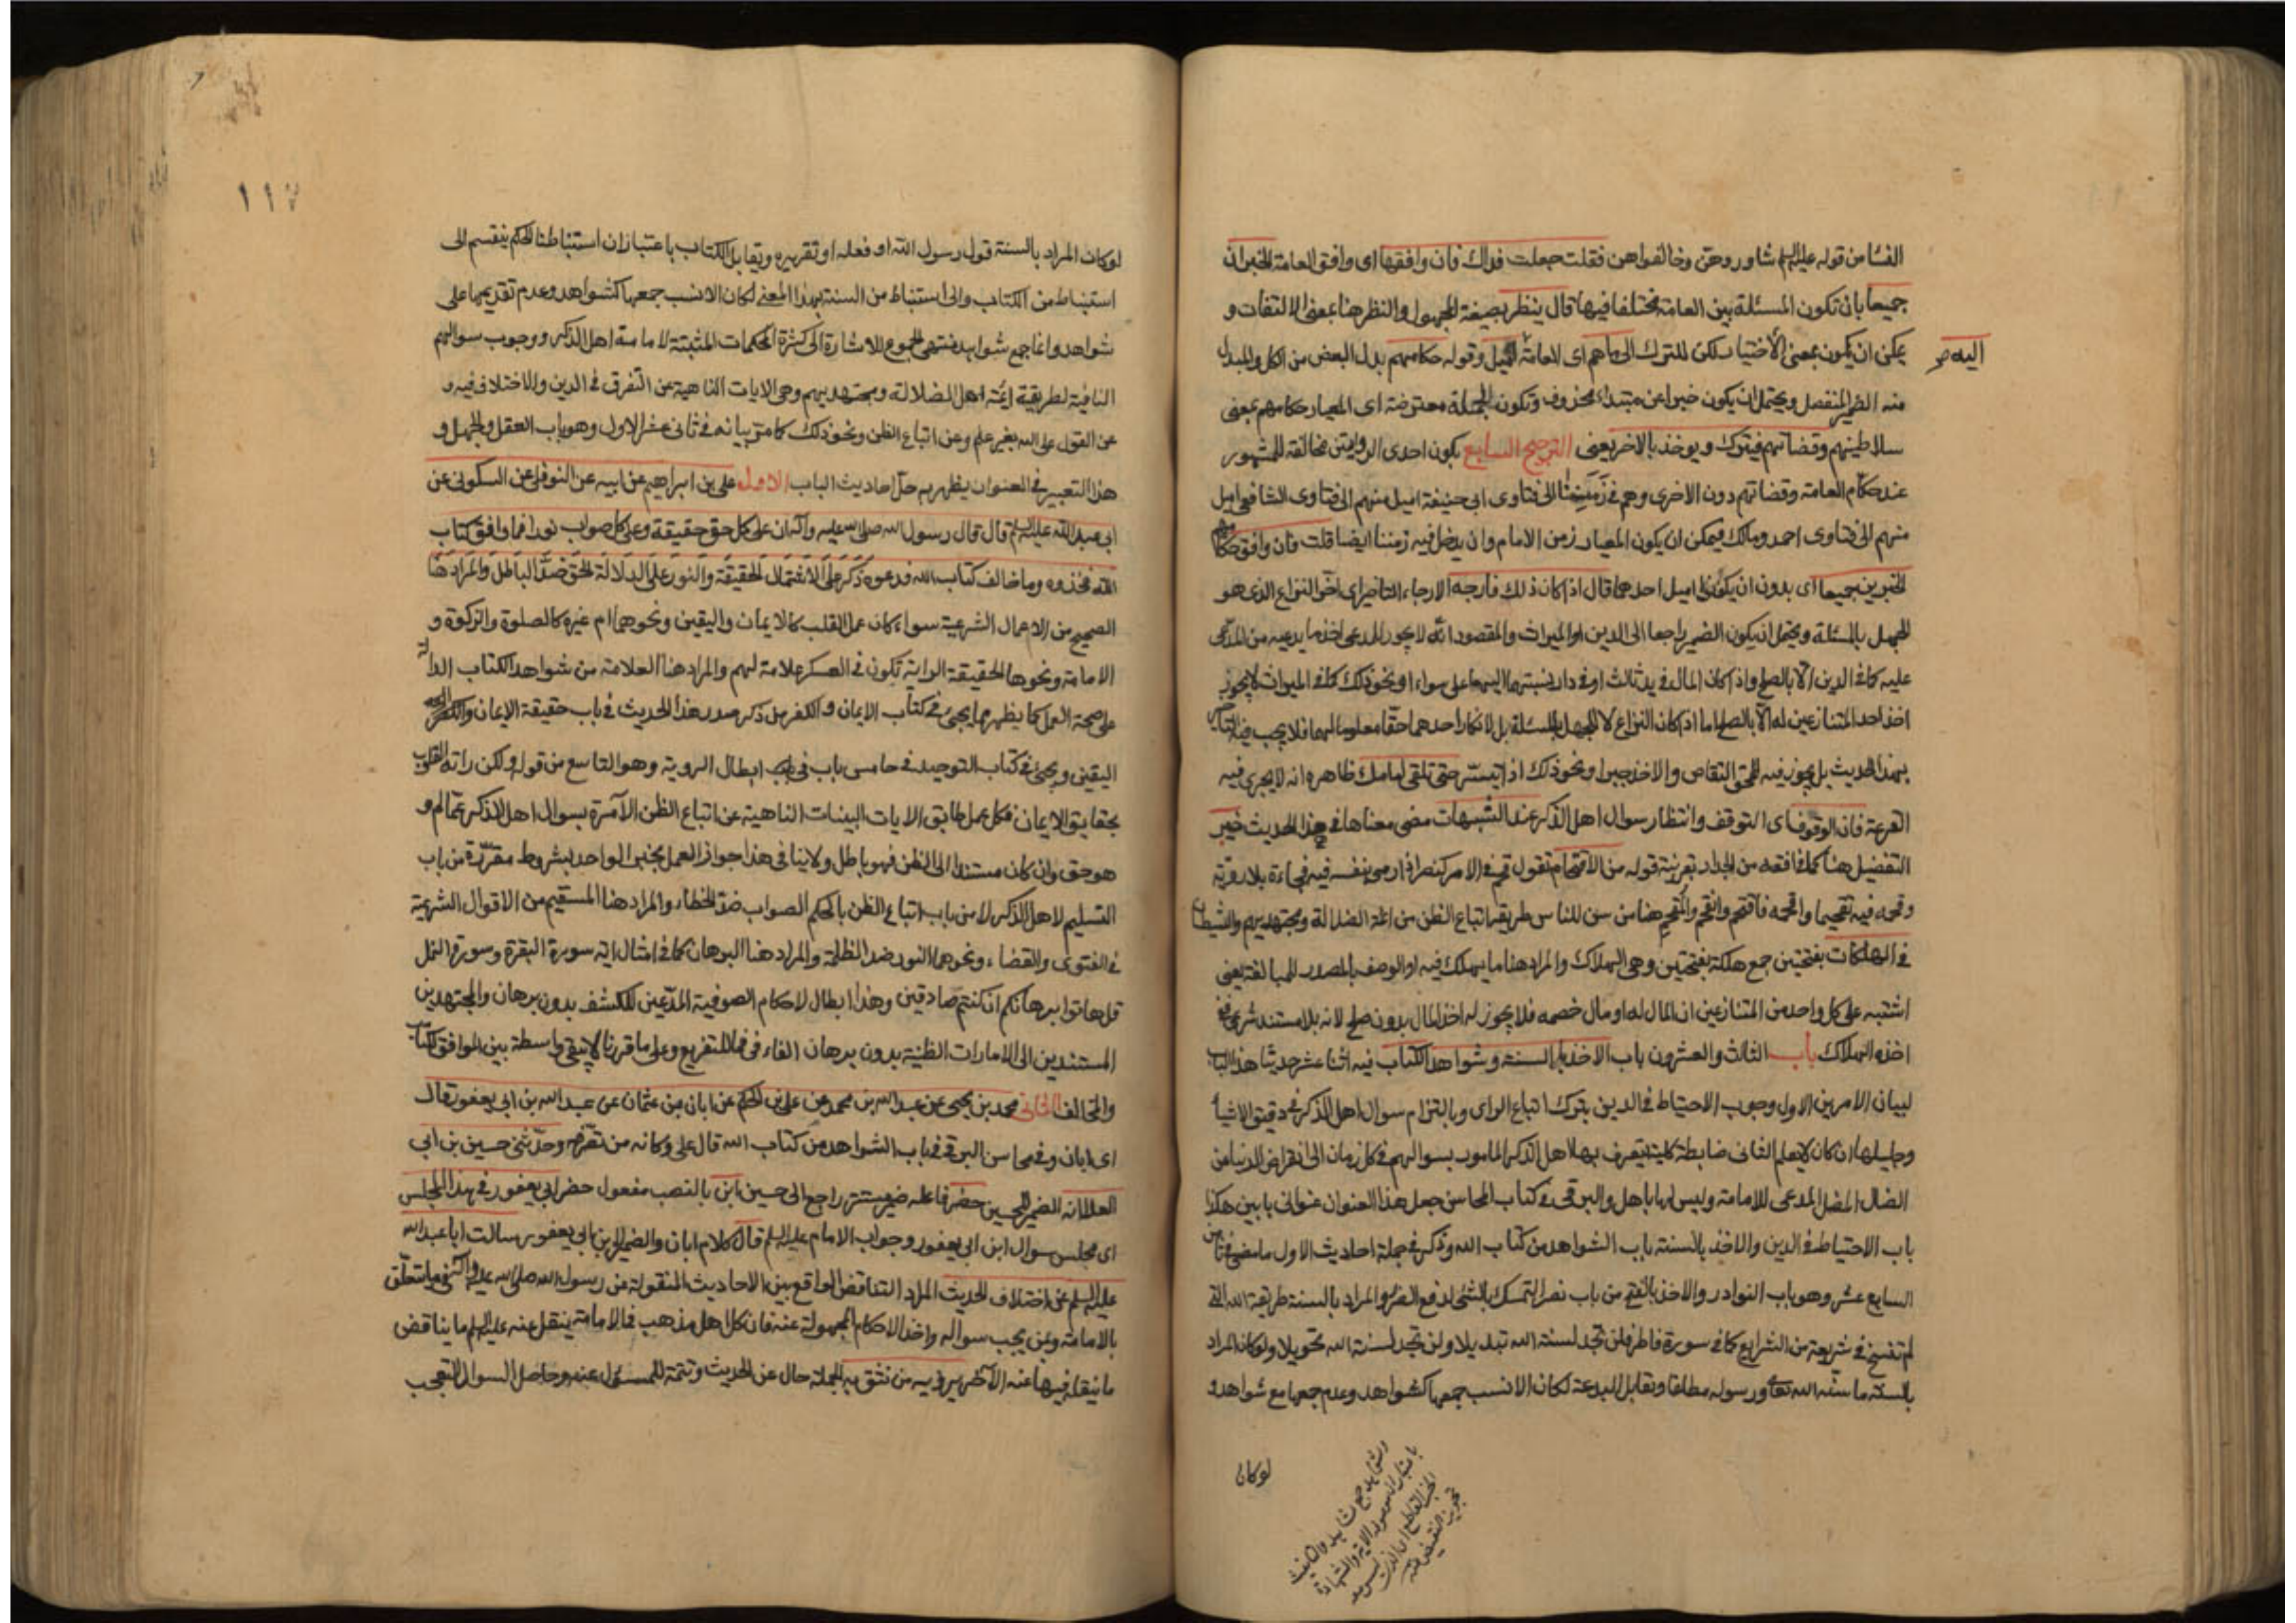 النسا من قوله عليه السلم شاوروهن وخالفواهن فقلت جعلت فداك فان وافقها اى وافق العامة الخبران
جميعا بان تكون المسئلة بين العامة مختلفا فيها قال ينظر بصيغة المجهول والنظر هنا بمعنى الالتفات و
يمكن ان يكون بمعنى الاختيار لكن للترك الى ما هم اى العامة اليه اميل وقوله حكامهم بدل البعض من الكل والمبدل
اليه صح
منه الضمير المنفصل ويحتمل ان يكون خبرا عن مبتداء محذوف وتكون الجملة معترضة اى المعيار حكامهم بمعنى
سلاطينهم وقضاتهم فيترك ويوخذ بالاخر يعنى الترجيح السابع يكون احدى الروايتين مخالفة للمشهور
عند حكام العامة وقضاتهم دون الاخرى وهم فى زمننا الى فتاوى ابى حنيفة اميل منهم الى فتاوى الشافعى اميل
منهم الى فتاوى احمد ومالك فيمكن ان يكون المعيار زمن الامام وان يدخل فيه زمننا ايضا قلت فان وافق حكامهم
الخبرين جميعا اى بدون ان يكونوا اميل احدهما قال اذا كان ذلك فارجه الارجاء التاخير اى اخر النزاع الذى هو
للجهل بالمسئلة ويحتمل ان يكون الضمير راجعا الى الدين او الميراث والمقصود انه لا يجوز للمدعى اخذ ما يدعيه من المدعى
عليه كما فى الدين الا بالصلح واذا كان المال فى يد ثالث او فى دار نسبتها اليهما على سواء او نحو ذلك كما فى الميراث لا يجوز
اخذ احد المتنازعين له الا بالصلح اما اذا كان النزاع لا للجهل بالمسئلة بل لانكار احدهما حقا معلوما لهما فلا يجب فيه
بهذا الحديث بل يجوز فيه للمحق التقاص والاخذ جبرا ونحو ذلك اذا تيسر حتى تلقى امامك ظاهره انه لا يجرى فيه
القرعة فان الوقوف اى التوقف وانتظار سوال اهل الذكر عند الشبهات مضى معناها فى هذا الحديث خير
التفضيل هنا كما فى افقه من الجدار بقرينة قوله من الاقتحام تقول قحم فى الامر كنصر اذا رمى بنفسه فيه فجاءة بلا روية
وقحمه فيه تقحيما واقحمه فاقتحم وانقحم والمقحم هنا من سن للناس طريقة اتباع الظن من ائمة الضلالة ومجتهديهم والشيطان
فى الهلكات بفتحتين جمع هلكة بفتحتين وهى الهلاك والمراد هنا ما يهلك فيه او الوصف بالمصدر للمبالغة يعنى
اشتبه على كل واحد من المتنازعين ان المال له او مال خصمه فلا يجوز له اخذ المال بدون صلح لانه بلا مستند شرعى فى
اخذه الهلاك باب الثالث والعشرون باب الاخذ بالسنة وشواهد الكتاب فيه اثنا عشر حديثا هذا الباب
لبيان الامرين الاول وجوب الاحتياط فى الدين بترك اتباع الراى وبالتزام سوال اهل الذكر فى دقيق الاشياء
وجليلها ان كان لا يعلم الثانى ضابطة كلية يتعرف بها اهل الذكر المامور بسوالهم فى كل زمان الى انقراض الدنيا من
الضال المضل المدعى للامامة وليس لها باهل والبرقى فى كتاب المحاسن جعل هذا العنوان عنوانى بابين هكذا
باب الاحتياط فى الدين والاخذ بالسنة باب الشواهد من كتاب الله وذكر فى جملة احاديث الاول ما مضى فى ثامن
السابع عشر وهو باب النوادر والاخذ بالفتح من باب نصر التمسك بالشئ لدفع الضرر والمراد بالسنة طريقة الله التى
لم تنسخ فى شريعة من الشرايع كما فى سورة فاطر فلن تجد لسنة الله تبديلا ولن تجد لسنة الله تحويلا ولو كان المراد
بالسنة ما سنه الله تعالى ورسوله مطلقا وتقابل البدعة لكان الانسب جمعها كشواهد وعدم جمعها مع شواهد و
لو كان
١١٧
لو كان المراد بالسنة قول رسول الله او فعله او تقريره ويقابل الكتاب باعتبار ان استنباطنا الحكم ينقسم الى
استنباط من الكتاب والى استنباط من السنة بهذا المعنى لكان الانسب جمعها كشواهد وعدم تقديمها على
شواهد وانما جمع شواهد بمنتهى الجموع للاشارة الى كثرة المحكمات المثبتة لامامة اهل الذكر ووجوب سوالهم
النافية لطريقة ائمة اهل الضلالة ومجتهديهم وهى الايات الناهية عن التفرق فى الدين والاختلاف فيه و
عن القول على الله بغير علم وعن اتباع الظن ونحو ذلك كما مر بيانه فى ثانى عشر الاول وهو باب العقل والجهل و
هذا التعبير فى العنوان يظهر به حل احاديث الباب الاول على بن ابراهيم عن ابيه عن النوفلى عن السكونى عن
ابى عبد الله عليه السلم قال قال رسول الله صلى الله عليه وآله ان على كل حق حقيقة وعلى كل صواب نورا فما وافق كتاب
الله فخذوه وما خالف كتاب الله فدعوه ذكر على لاشتمال الحقيقة والنور على الدلالة الحق ضد الباطل والمراد هنا
الصحيح من الاعمال الشرعية سواء كان عمل القلب كالايمان واليقين ونحوهما ام غيره كالصلوة والزكوة و
الامامة ونحوها الحقيقة الراية تكون فى العسكر علامة لهم والمراد هنا العلامة من شواهد الكتاب الدالة
على صحة العمل كما يظهر مما يجئ فى كتاب الايمان والكفر من ذكر صدر هذا الحديث فى باب حقيقة الايمان و
اليقين ويجئ فى كتاب التوحيد فى خامس باب فى ابطال الروية وهو التاسع من قوله ولكن راته القلوب
بحقايق الايمان فكل عمل طابق الايات البينات الناهية عن اتباع الظن الآمرة بسوال اهل الذكر عما لم و
هو حق وان كان مستندا الى الظن فهو باطل ولا ينافى هذا جواز العمل بخبر الواحد بشروط مقررة من باب
التسليم لاهل الذكر لا من باب اتباع الظن بالحكم الصواب ضد الخطاء والمراد هنا المستقيم من الاقوال الشرعية
فى الفتوى والقضاء ونحوهما النور ضد الظلمة والمراد هنا البرهان كما فى امثال اية سورة البقرة وسورة النمل
قل هاتوا برهانكم ان كنتم صادقين وهذا ابطال لاحكام الصوفية المدعين للكشف بدون برهان والمجتهدين
المستندين الى الامارات الظنية بدون برهان الفاء فى فما للتفريع وعلى ما قررنا لا يبقى واسطة بين الموافق لكتاب
والمخالف الثانى محمد بن يحيى عن عبد الله بن محمد عن على بن الحكم عن ابان بن عثمان عن عبد الله بن ابى يعفور قال
اى ابان وفى محاسن البرقى فى باب الشواهد من كتاب الله قال على وكانه من وحدثنى حسين بن ابى
العلا انه الضمير لحسين حضر فاعله ضمير مستتر راجع الى حسين ابن بالنصب مفعول حضر ابى يعفور فى هذا المجلس
اى مجلس سوال ابن ابى يعفور وجواب الامام عليه السلم قال كلام ابان والضمير لابن ابى يعفور سالت ابا عبد الله
عليه السلم عن اختلاف الحديث المراد التناقض الواقع بين الاحاديث المنقولة عن رسول الله صلى الله عليه وآله فيما يتعلق
بالامامة وبمن يجب سواله واخذ الاحكام المجهولة عنه فان كل اهل مذهب فى الامامة ينقل عنه عليه السلم ما يناقض
ما ينقله فيها عنه الآخر يرويه من نثق به الجملة حال عن الحديث وتتمة للمسئول عنه وحاصل السوال التعجب